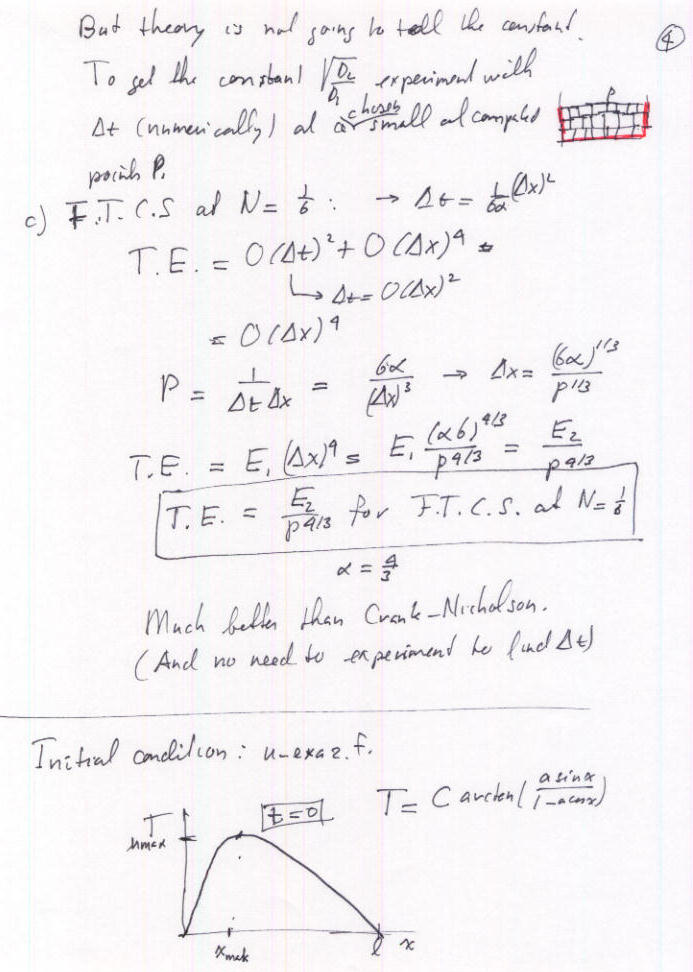 But theory is not going to tell the constant.
④
To get the constant √(D₂/D₁) experiment with
Δt (numerically) at a chosen small at computed
points P.
P
c) F.T.C.S at N = 1/6 : → Δt = 1/6α (Δx)²
T.E. = O(Δt)² + O(Δx)⁴ =
↳ Δt = O(Δx)²
= O(Δx)⁴
P = 1/(Δt Δx) = 6α/(Δx)³ → Δx = (6α)^1/3 / P^1/3
T.E. = E₁ (Δx)⁴ = E₁ (α6)^4/3 / P^4/3 = E₂ / P^4/3
T.E. = E₂ / P^4/3 for F.T.C.S. at N = 1/6
α = 4/3
Much better than Crank-Nicholson.
(And no need to experiment to find Δt)
Initial condition: u-exa2.f.
T = C arctan( a sinx / 1-acosx )
t=0
T
umax
xmax
l
x